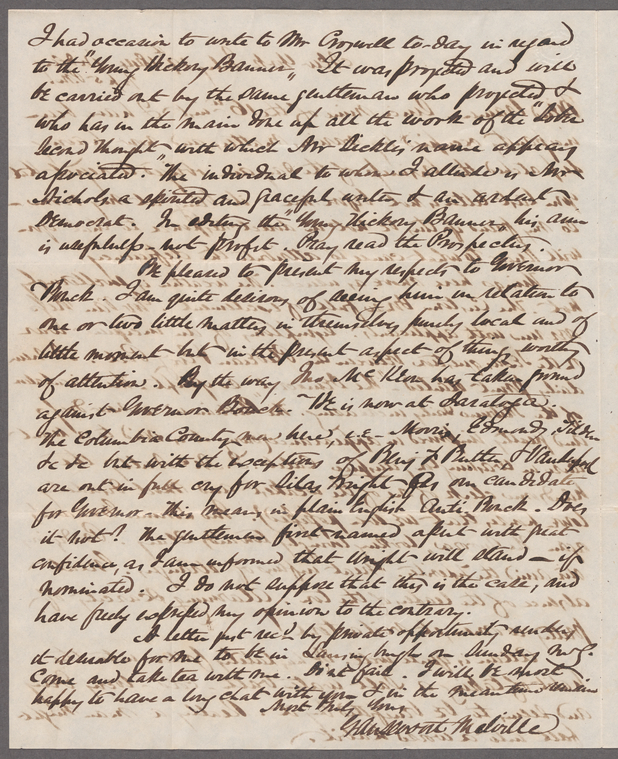 I had occasion to write to Mr Croswell to-day in regard
to the "Young Hickory Banner". It was projected and will
be carried out by the same gentleman who projected &
who has in the main done up all the work of the
Second Thought" with which Mr Sickles' name appears
associated. The individual to whom I allude is Mr
Nichols a spirited and graceful writer & an ardent
Democrat. In editing the "Young Hickory Banner" his aim
is usefulness - not profit. Pray read the Prospectus.
Be pleased to present my respects to Governor
Bouck. I am quite desirous of seeing him in relation to
one or two little matters in themselves purely local and of
little moment but in the present aspect of things worthy
of attention. By the way Jno. Mc Keon has taken ground
against Governor Bouck. He is now at Saratoga.
The Columbia County men here, i.e. Morris, Edmonds,
&c &c but with the exceptions of Benj F Butler & Vanderpoel
are out in full cry for Silas Wright as our candidate
for Governor. This means in plain English Anti-Bouck. Does
it not? The gentlemen first named assert with great
confidence, as I am informed that Wright will stand - if
nominated. I do not suppose that this is the case, and
have freely expressed my opinion to the contrary.
A letter just recd by private opportunity renders
it desirable for me to be in Lansingburgh on Sunday
Come and take tea with me. Do not fail. I will be most
happy to have a long chat with you & in the meantime
Most Truly Yours
Gansevoort Melville